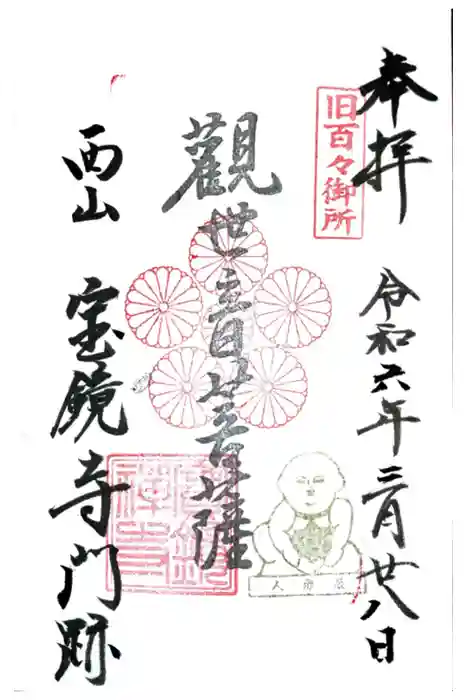 奉拝
旧百々御所
令和六年三月廿八日
觀世音菩薩
西山 宝鏡寺門跡